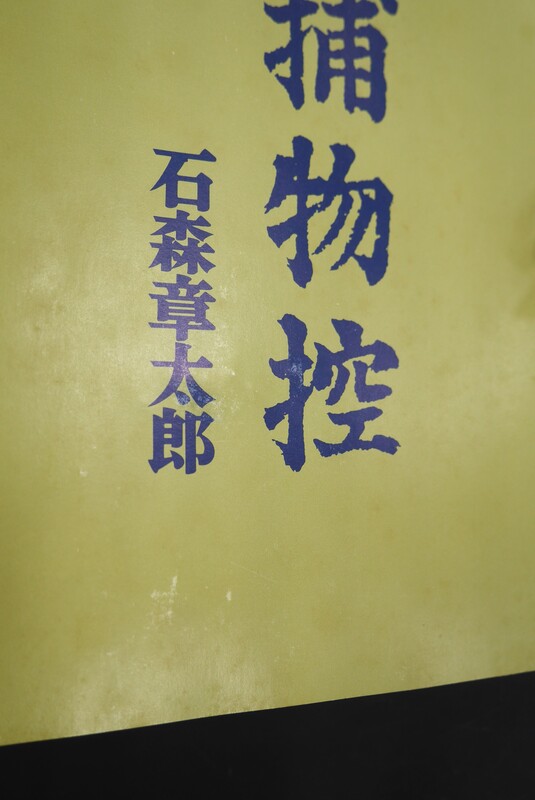 捕物控
石森章太郎